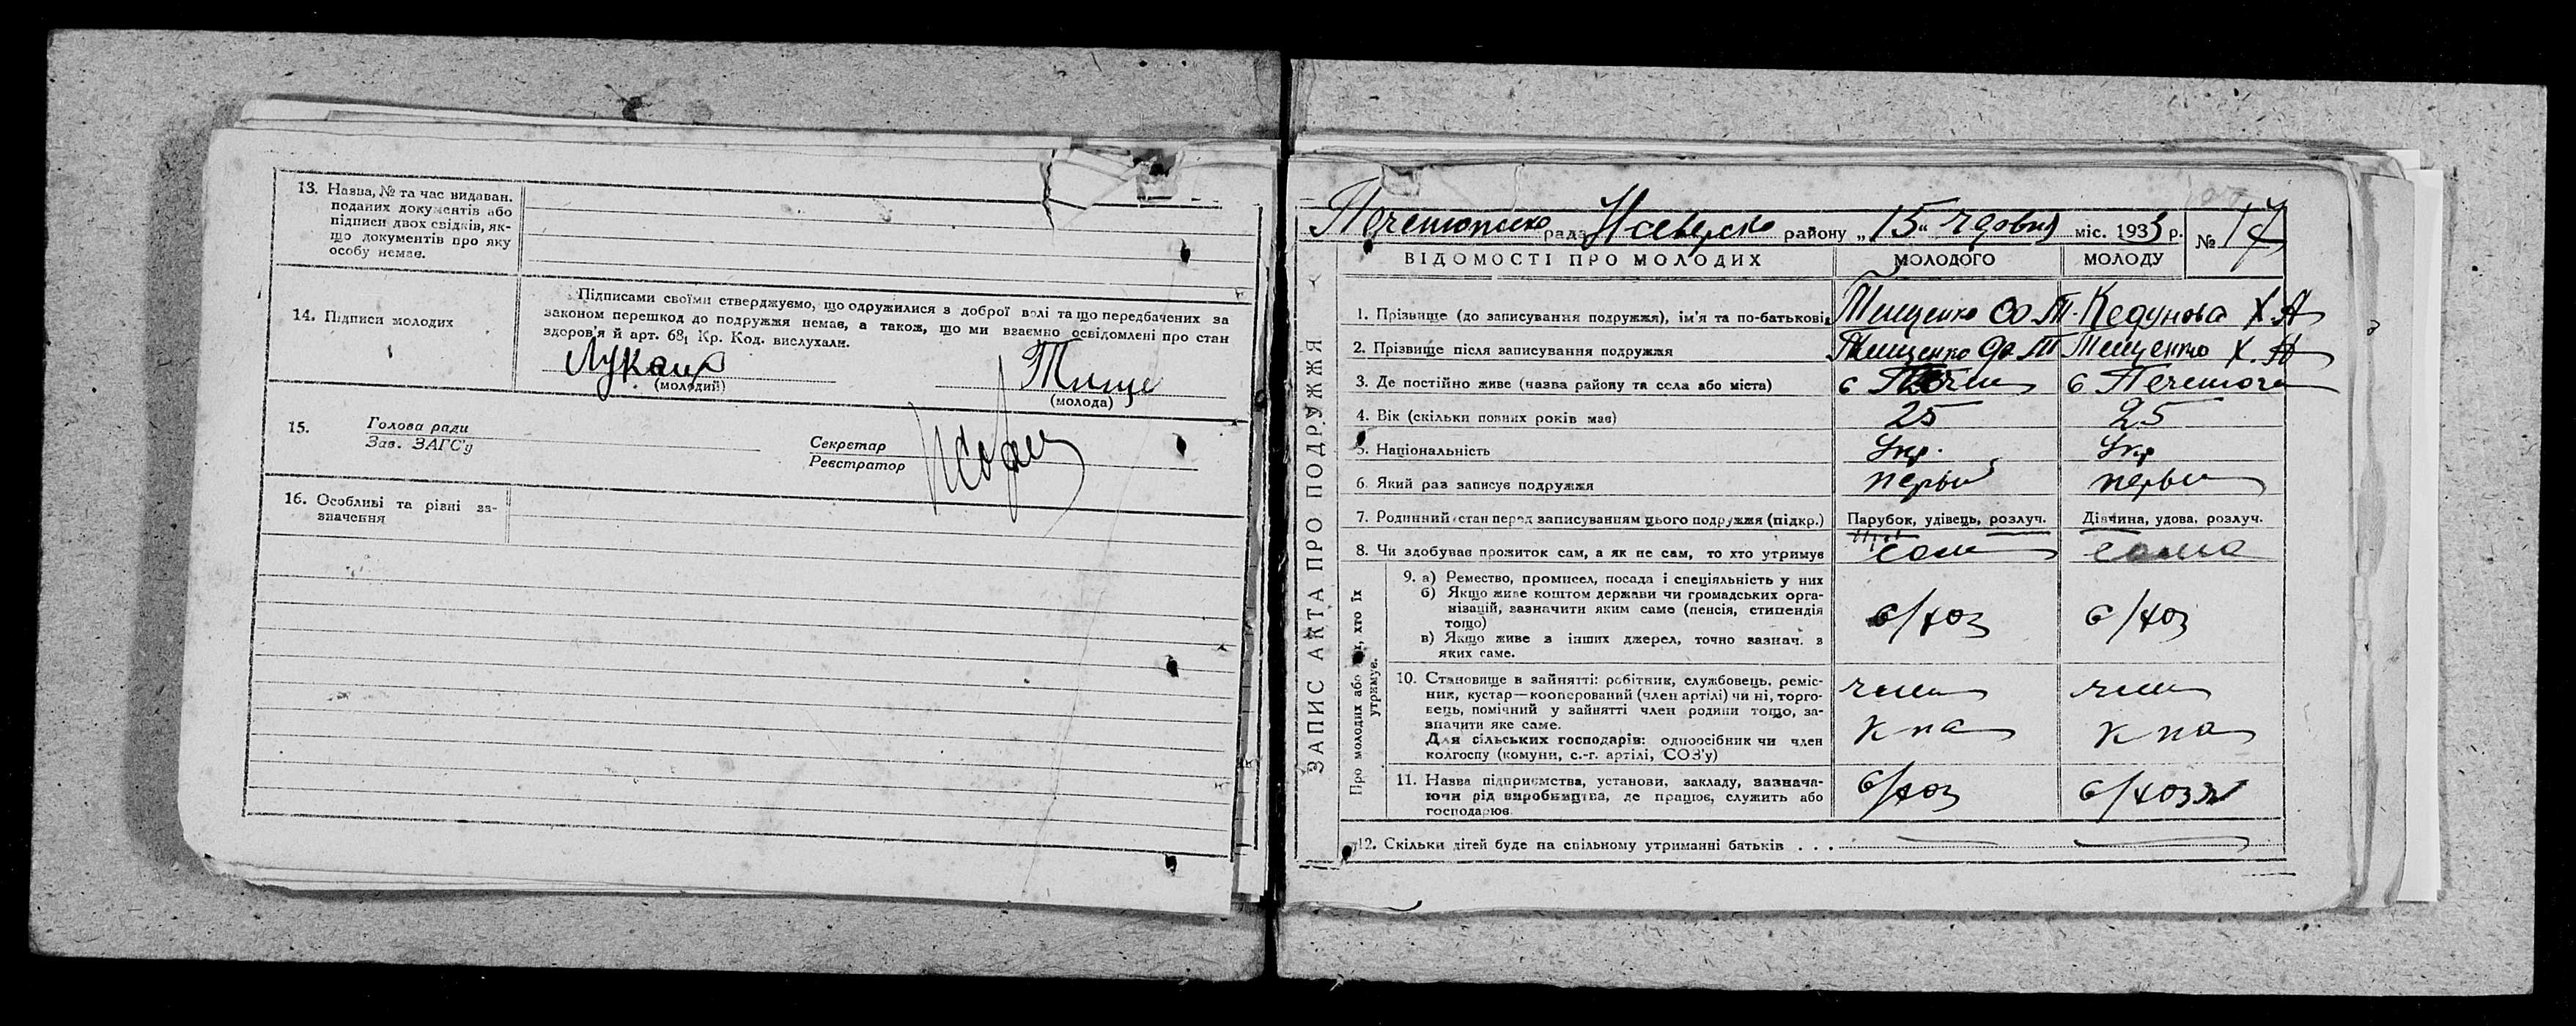 13. Назва, № та час видаван.
поданих документів або
підписи двох свідків, як-
що документів про яку
особу немає.
14. Підписи молодих
Підписами своїми стверджуємо, що одружилися з доброї волі та що передбачених за
законом перешкод до подружжя немає, а також, що ми взаємно освідомлені про стан
здоров'я й арт. 68₁ Кр. Код. вислухали.
(молодий)
(молода)
15. Голова ради
Зав. ЗАГС'у
Секретар
Реєстратор
16. Особливі та різні за-
значення
ЗАПИС АКТА ПРО ПОДРУЖЖЯ
рада району „15“ міс. 1933 р. № 17
ВІДОМОСТІ ПРО МОЛОДИХ МОЛОДОГО МОЛОДУ
1. Прізвище (до записування подружжя), ім'я та по-батькові Тищенко Кедунова Х. А
2. Прізвище після записування подружжя Тищенко Тищенко Х. А
3. Де постійно живе (назва району та села або міста)
4. Вік (скільки повних років має) 25 25
5. Національність Укр. Укр
6. Який раз записує подружжя первий первий
7. Родинний стан перед записуванням цього подружжя (підкр.) Парубок, удівець, розлуч. Дівчина, удова, розлуч.
8. Чи здобуває прожиток сам, а як не сам, то хто утримує сам сама
Про молодих або тих, хто їх
утримує.
9. а) Ремество, промисел, посада і спеціяльність у них
б) Якщо живе коштом держави чи громадських орга-
нізацій, зазначити яким саме (пенсія, стипендія
тощо)
в) Якщо живе з інших джерел, точно зазнач. з
яких саме.
с/хоз с/хоз
10. Становище в зайнятті: робітник, службовець, реміс-
ник, кустар—кооперований (член артілі) чи ні, торго-
вець, помічний у зайнятті член родини тощо, за-
значити яке саме.
Для сільських господарів: одноосібник чи член
колгоспу (комуни, с.-г. артілі, СОЗ'у)
член член
11. Назва підприємства, установи, закладу, зазнача-
ючи рід виробництва, де працює, служить або
господарює
с/хоз
12. Скільки дітей буде на спільному утриманні батьків . . .